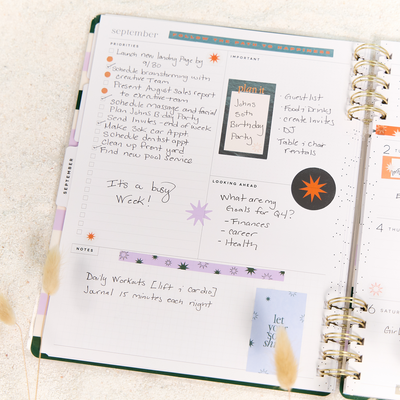 september
FOLLOW THE KEYS TO HAPPINESS
PRIORITIES
Launch new landing Page by
9/30
Schedule brainstorming with
creative Team
Present August sales report
to executive team
Schedule massage and facial
Plan Johns B day Party
Send Invite - end of week
Make 30k car Appt
Schedule dentist appt
Clean up front yard
Find new pool service
It's a busy
Week!
IMPORTANT
plan it
Johns
50th
Birthday
Party
Guest list
Food + Drinks
create Invites
DJ
Table + chair
rentals
LOOKING AHEAD
What are my
Goals for Q4?
- Finances
- Career
- Health
SEPTEMBER
NOTES
Daily Workouts [lift + Cardio]
Journal 15 minutes each night
let
your
2
4
6
SATUR